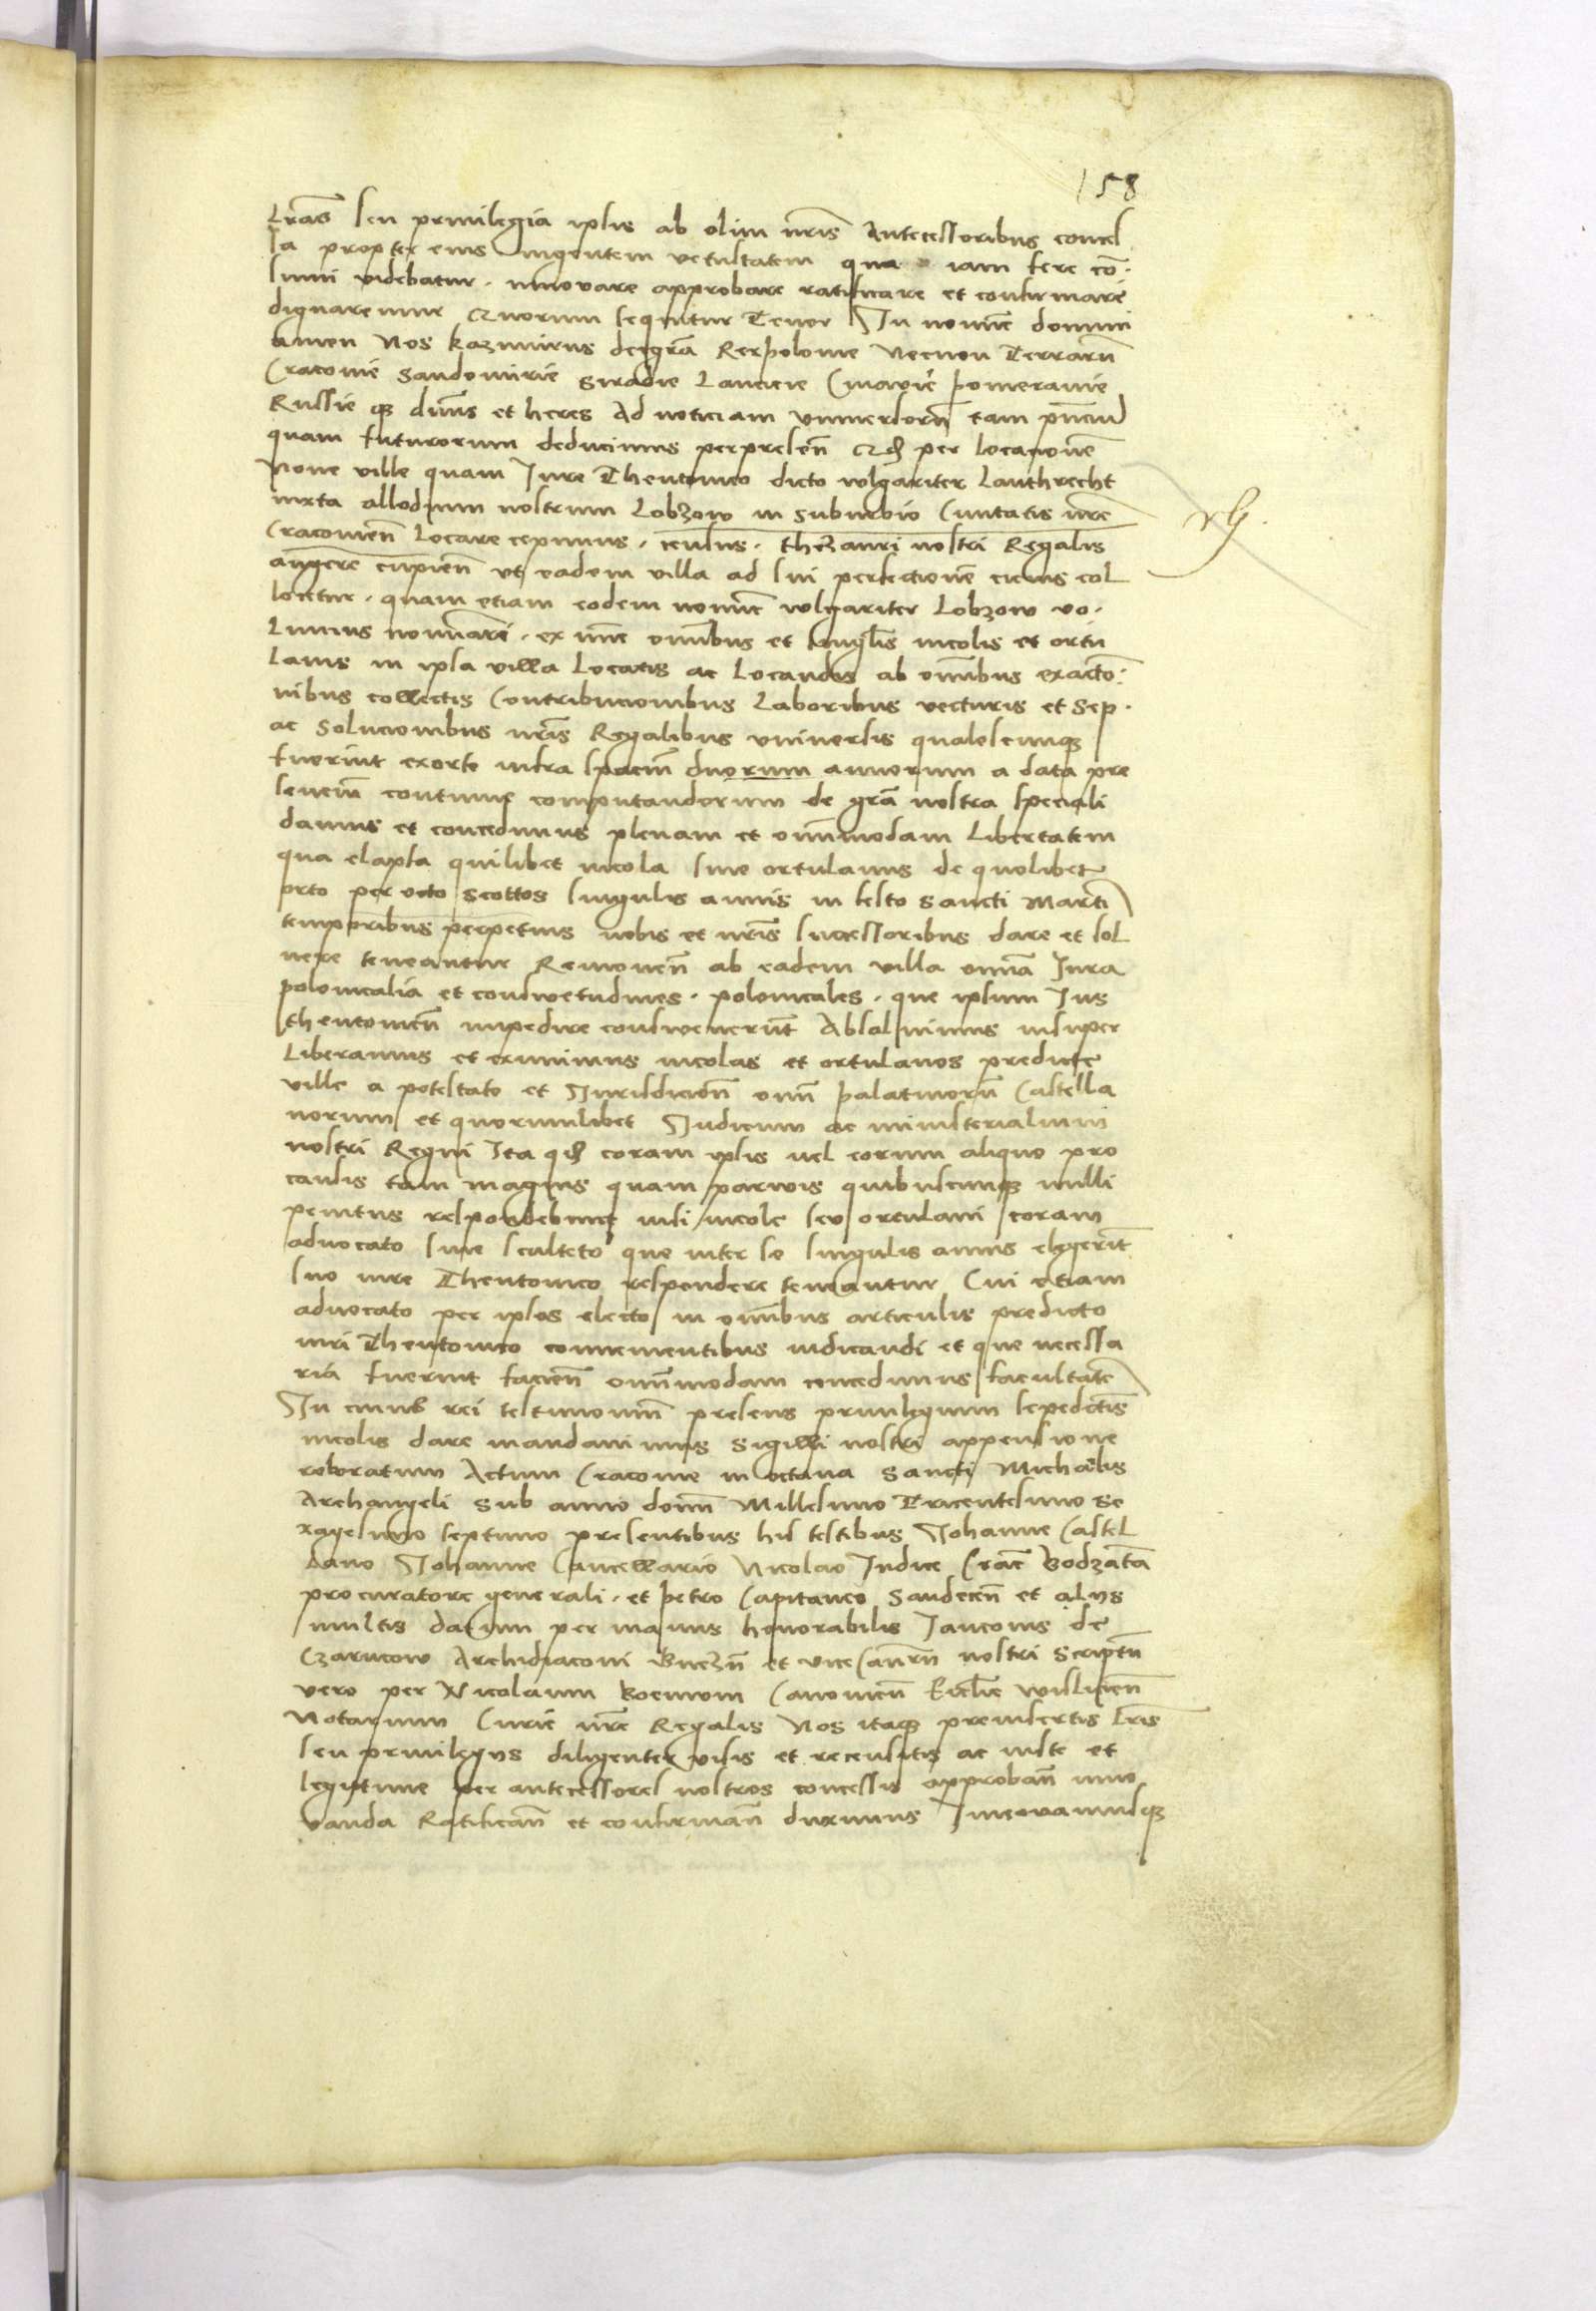 158
Lrãs seu privilegia ipsis ab olim nrĩs Antecessoribus conces
sa propter eius ingentem vetustatem qua iam fere cõ.
sumi videbatur. innovare approbare ratificare et confirmare
dignaremur Quorum sequitur Tenor In nomĩe domini
amen Nos Kazimirus deigrã Rexpolonie Necnon Terrarũ
Cracovie Sandomirie Siradie Lancicie Cuiavie pomeranie
Russie q3 dnũs et heres Ad noticiam universorũ tam pñciũ
quam futurorum deducimus perpresen̄ Qd per locacionẽ
Nove ville quam Jure Theutonico dicto wlgariter Lanthrecht
iuxta allodium nostrum Lobzow in suburbio Civitatis nrẽ
Cracovien̄ Locare cepimus. census. thezauri nostri Regalis
augere cupien̄ ut eadem villa ad sui perfectionẽ cicius col
locetur. quam etiam eodem nomĩe wlgariter Lobzow vo.
Lumus nomĩare. ex nũc omĩbus et singl̃is incolis et ortu
Lanis in ipsa villa Locatis ac Locandis ab omĩbus exactõ:
nibus collectis Contribucionibus Laboribus vecturis et Sep.
ac Solucionibus nrĩs Regalibus universis qualescunq3
fuerint exorte infra spaciũ duorum annorum a data pre
senciũ continue computandorum de grã nostra speciali
damus et concedimus plenam et omĩmodam Libertatem
qua elapsa quilibet incola sive ortulanus de quolibet
orto per octo scottos singulis annis in festo sancti Marti
temporibus perpetuis nobis et nrĩs successoribus dare et sol
vere teneantur Removen̄ ab eadem villa omĩa Jura
polonicalia et conswetudines. polonicales. que ipsum Jus
theutonicũ impedire consweverũt Absolvimus insuper
Liberamus et eximimus incolas et ortulanos predicte
ville a potestate et Jurisdiciõn omĩ palatinorũ Castella
norum et quorumlibet Judicum ac ministerialium
nostri Regni Ita qd coram ipsis vel eorum aliquo pro
causis tam magnis quam parwis quibuscunq3 nulli
penitus respondebunt nisi incole seu ortulani coram
advocato sive sculteto que inter se singulis annis elegerĩt
suo iure Theutonico respondere teneantur Cui etiam
advocato per ipsos electo in omĩbus articulis predicto
iuri Theutonico convenientibus iudicandi et que necessa
ria fuerint facien̄ omĩmodam concedimus facultatẽ
In cuius rei testimoniũ presens privilegium sepedictis
incolis dare mandavimus Sigilli nostri appensione
roboratum Actum Cracovie in octava Sancti Michaelis
Archangeli Sub anno domĩ Millesimo Tricentesimo Se
xagesimo septimo presentibus his testibus Johanne Castel
Lano Johanne Cancellario Nicolao Judice Crac̃ Bodzantã
procuratore generali. et petro Capitaneo Sandecen̄ et alijs
multis datum per manus honorabilis Janconis de
Czarncow Archidiaconi Gnezn̄ et vice Canc̃rii nostri Scriptũ
vero per Nicolaum Boemom Canonicũ Eccl̃ie wislicien̄
Notarium Curie nrẽ Regalis Nos itaq3 preinsertis Lrĩs
seu privilegijs diligenter visis et recensitis ac iuste et
legitime per antecessores nostros concessis approban̄ inno
vanda Ratifican̄ et confirman̄ duximus Innovamusq3